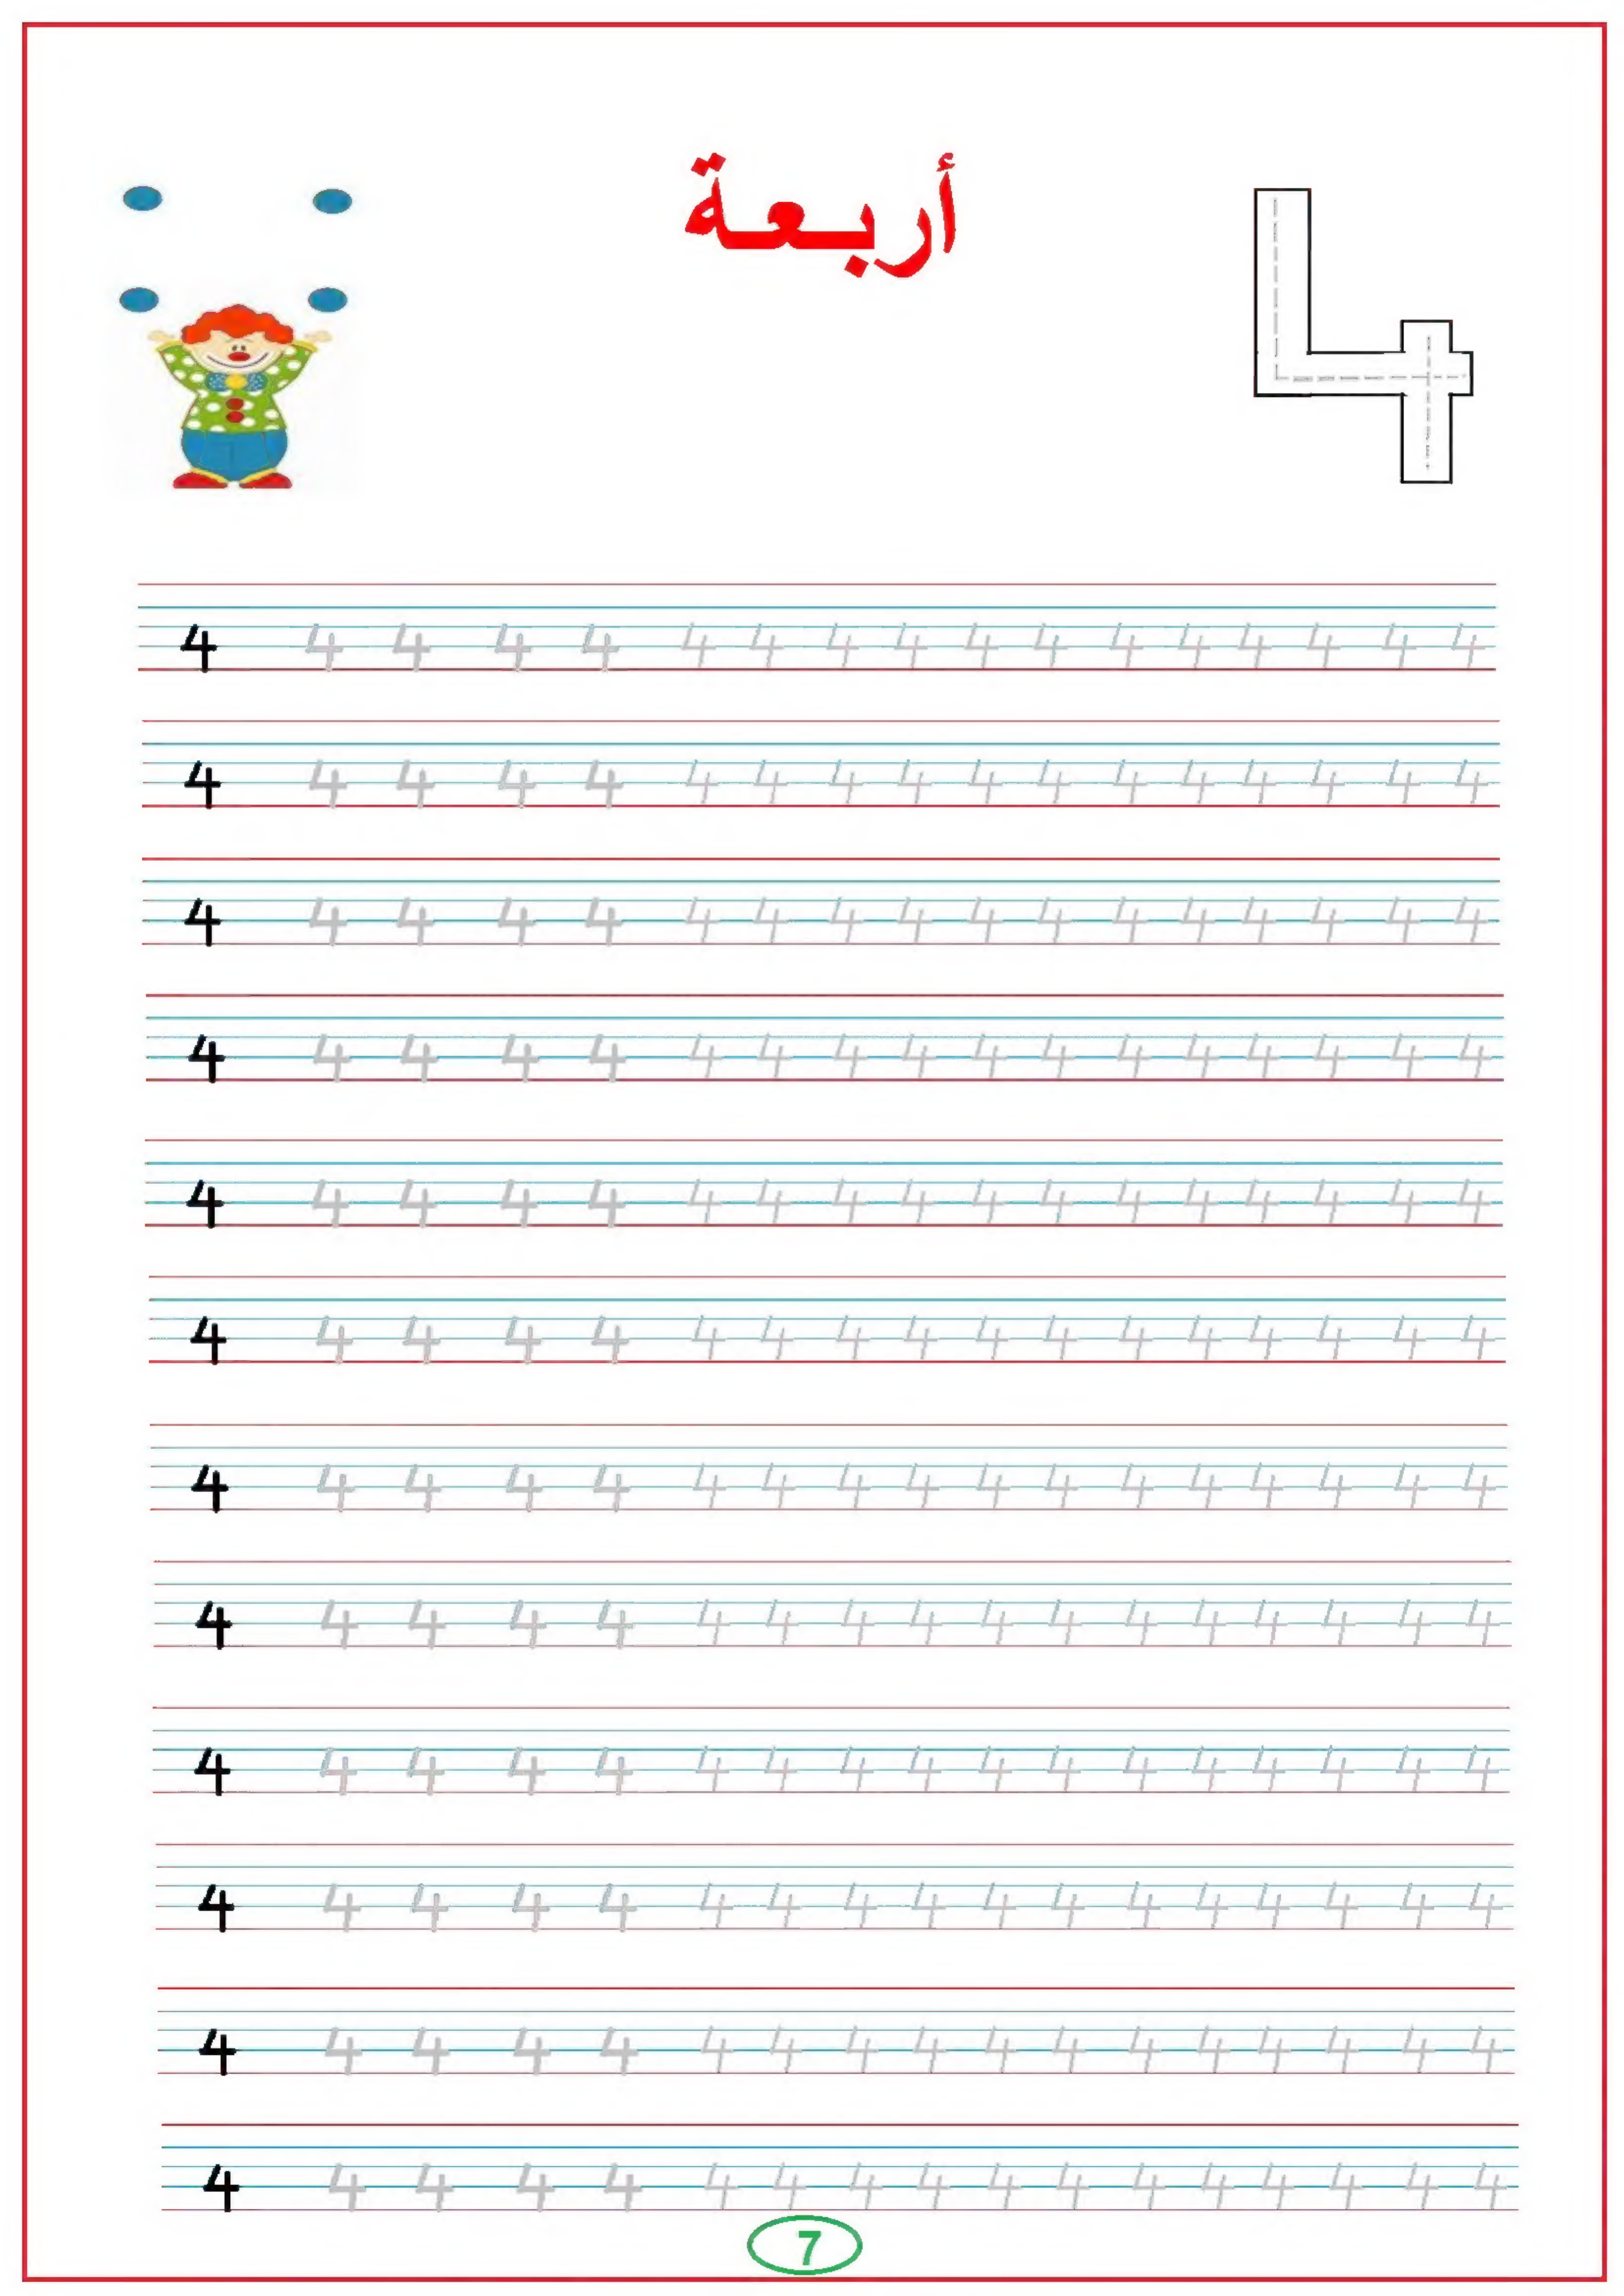 أربعة
4
4 4 4 4 4 4 4 4 4 4 4 4 4 4 4 4 4
4 4 4 4 4 4 4 4 4 4 4 4 4 4 4 4 4
4 4 4 4 4 4 4 4 4 4 4 4 4 4 4 4 4
4 4 4 4 4 4 4 4 4 4 4 4 4 4 4 4 4
4 4 4 4 4 4 4 4 4 4 4 4 4 4 4 4 4
4 4 4 4 4 4 4 4 4 4 4 4 4 4 4 4 4
4 4 4 4 4 4 4 4 4 4 4 4 4 4 4 4 4
4 4 4 4 4 4 4 4 4 4 4 4 4 4 4 4 4
4 4 4 4 4 4 4 4 4 4 4 4 4 4 4 4 4
4 4 4 4 4 4 4 4 4 4 4 4 4 4 4 4 4
4 4 4 4 4 4 4 4 4 4 4 4 4 4 4 4 4
4 4 4 4 4 4 4 4 4 4 4 4 4 4 4 4 4
7